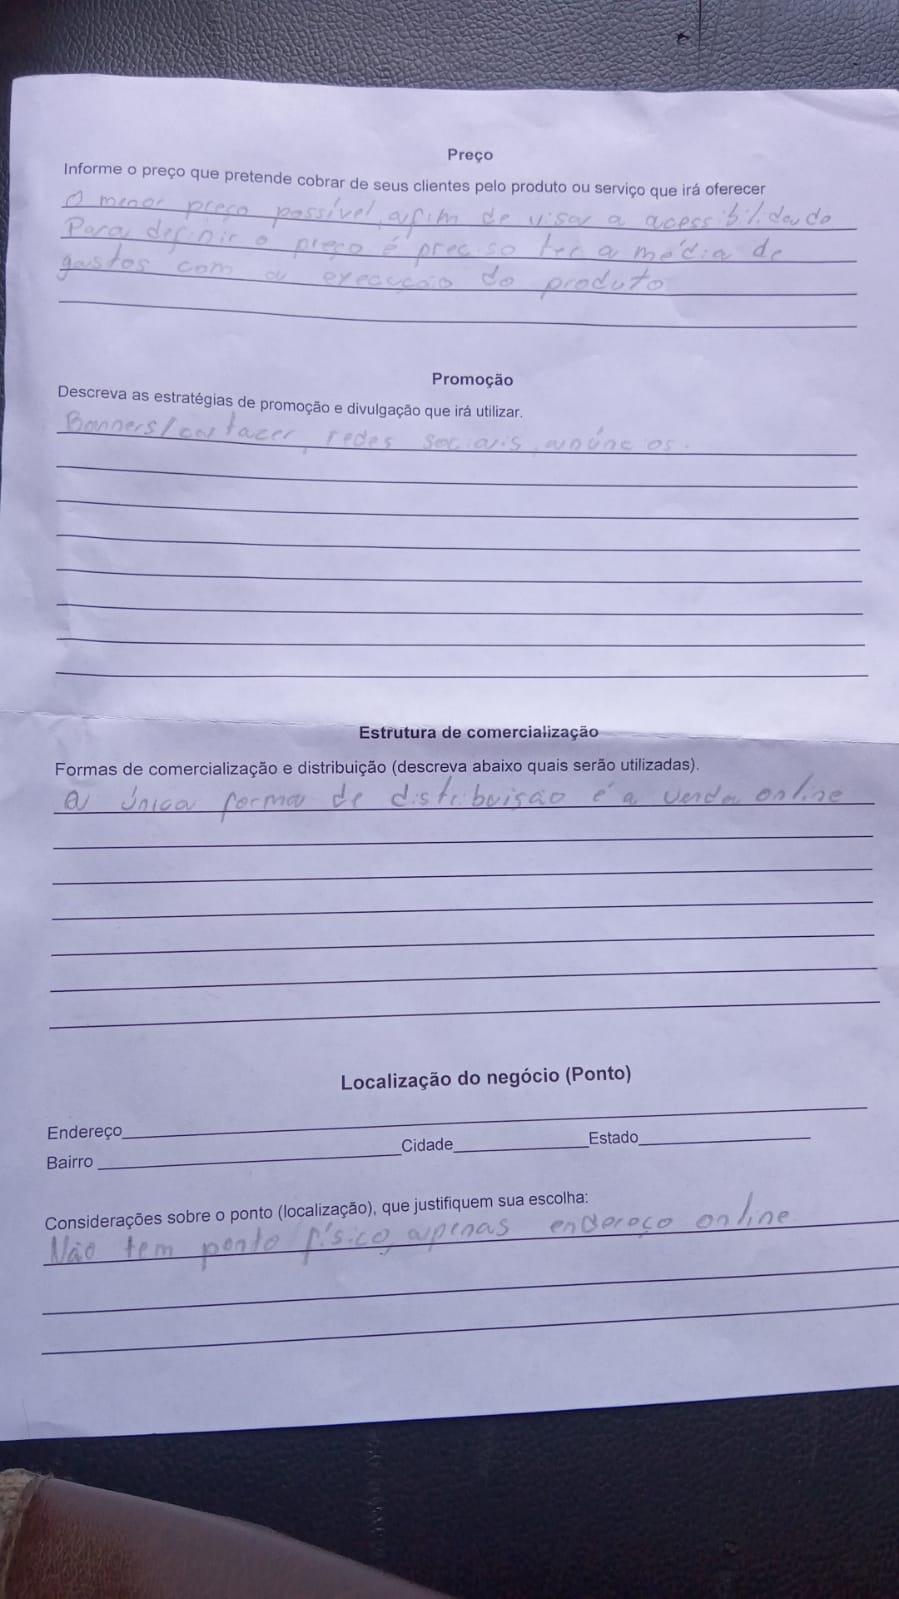 Preço
Informe o preço que pretende cobrar de seus clientes pelo produto ou serviço que irá oferecer
O menor preço possível, afim de visar a acessibilidade
Para definir o preço é preciso ter a média de
gastos com a execução do produto
Promoção
Descreva as estratégias de promoção e divulgação que irá utilizar.
Banners/cartazer, redes sociais, anúncios.
Estrutura de comercialização
Formas de comercialização e distribuição (descreva abaixo quais serão utilizadas).
A única forma de distribuisão é a venda online
Localização do negócio (Ponto)
Endereço
Bairro Cidade Estado
Considerações sobre o ponto (localização), que justifiquem sua escolha:
Não tem ponto físico, apenas endereço online.